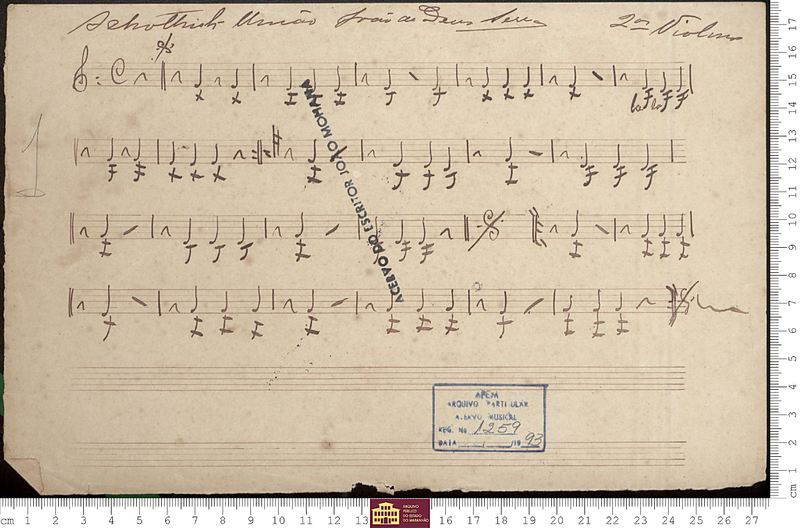 Schottisch União João de Deus Serra 2os Violinos
ACERVO DO ESCRITOR JOÃO MOHANA
APEM
ARQUIVO PARTICULAR
ACERVO MUSICAL
REG. No 1259
DATA / /19 93
17
16
15
14
13
12
11
10
9
8
7
6
5
4
3
2
1
cm
cm 1 2 3 4 5 6 7 8 9 10 11 12 13 16 17 18 19 20 21 22 23 24 25 26 27
ARQUIVO
PÚBLICO
DO ESTADO
DO MARANHÃO